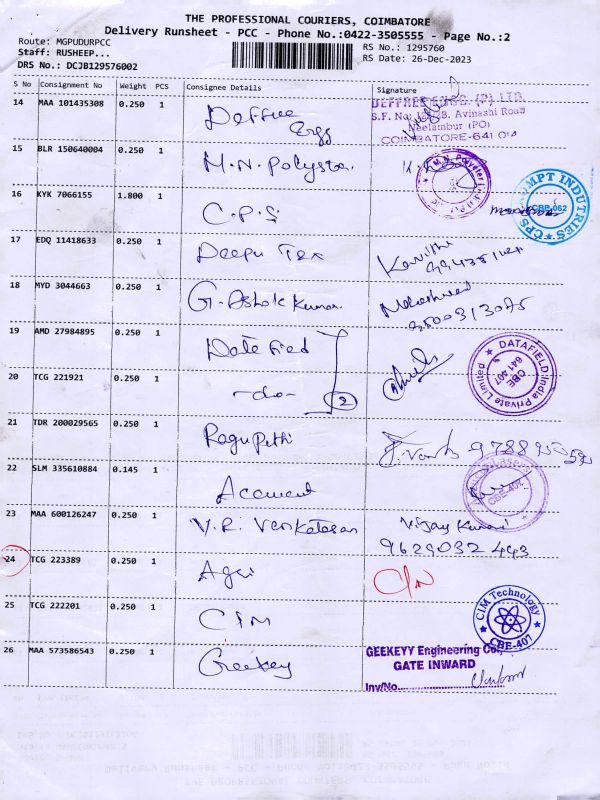 THE PROFESSIONAL COURIERS, COIMBATORE
Delivery Runsheet - PCC - Phone No.:0422-3505555 - Page No.:2
Route: MGPUDURPCC
Staff: RUSHEEP...
RS No.: 1295760
DRS No.: DCJB129576002
RS Date: 26-Dec-2023
S No Consignment No Weight PCS Consignee Details Signature
14 MAA 101435308 0.250 1 Deffree Engg
DEFFREE ENGG. (P) LTD
Avinashi Road
Neelambur (PO)
COIMBATORE-641 014
15 BLR 150640004 0.250 1 M.N. Polyster
16 KYK 7066155 1.800 1 C.P.S
CBE-062
17 EDQ 11418633 0.250 1 Deepu Tex Kavitha
18 MYD 3044663 0.250 1 G. Ashok Kumar
19 AMD 27984895 0.250 1 Datafied
DATAFIELD India Private Limited
CBE
641 407
20 TCG 221921 0.250 1 -do- 2
21 TDR 200029565 0.250 1 Ragupathi
22 SLM 335610884 0.145 1 Accment
CBE-402
23 MAA 600126247 0.250 1 V.R. Venkatasan Vijay Kumar
9629032443
24 TCG 223389 0.250 1 Agri
25 TCG 222201 0.250 1 CIM
CIM Technology
CBE-407
26 MAA 573586543 0.250 1 Geekey
GEEKEYY Engineering Co.,
GATE INWARD
Inv/No.